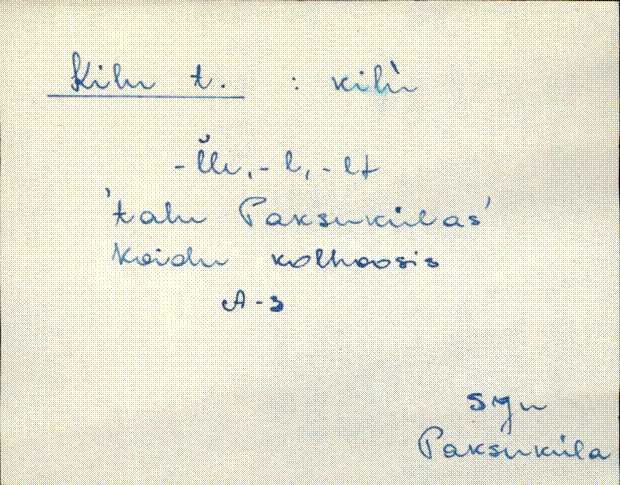 Kilu t. : kilù
-l̆lu, -l, -lt
'talu Paksukülas'
Koidu kolhoosis
A-3
Sgu
Paksuküla